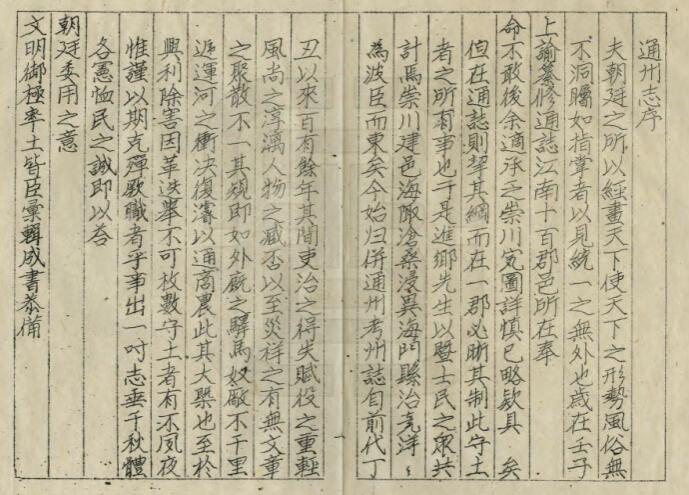 通州志序
夫朝廷之所以經畫天下使天下之形勢風俗無
不洞矚如指掌者以見統一之無外也歲在壬子
上諭纂修通誌江南十百郡邑所在奉
命不敢後余適承乏崇川寃圖詳慎已略欵具 矣
但在通誌則挈其綱而在一郡必晰其制此守土
者之所有事也于是進鄉先生以暨士民之眾共
計焉崇川建邑海陬滄桑浸異海門縣治竟洋〻
為波臣而東矣今始归併通州考州誌自前代丁
丑以來百有餘年其間吏治之得失賦役之重輕
風尚之淳漓人物之臧否以至災祥之有無文章
之聚散不一其規即如外廐之驛馬奴厰不千里
遞運河之衝決復濬以通商農此其大槩也至於
興利除害因革迭舉不可枚數守土者有不夙夜
惟謹以期克殫厥職者乎事出一吋志垂千秋體
各憲恤民之誠即以荅
朝廷委用之意
文明御極率土皆臣彙輯成書恭備